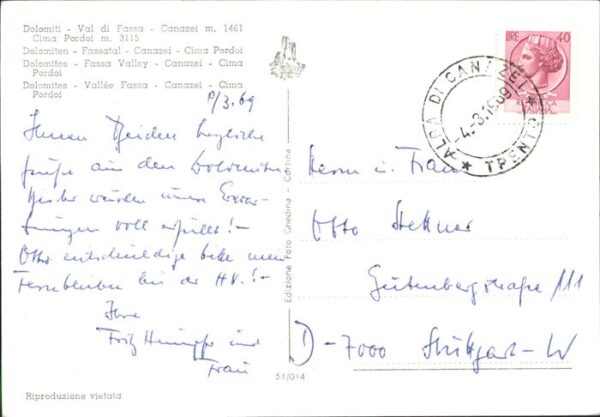 Dolomiti - Val di Fassa - Canazei m. 1461
Cima Pordoi m. 3115
Dolomiten - Fassatal - Canazei - Cima Pordoi
Dolomites - Fassa Valley - Canazei - Cima
Pordoi
Dolomites - Vallée Fassa - Canazei - Cima
Pordoi
/3.69
Ihnen Beiden herzliche
Grüße aus den Dolomiten
Bisher wurden unsere Erwar-
tungen voll erfüllt!-
Otto entschuldige bitte mein
Fernbleiben bei der HV.!-
Ihre
Fritz und
Frau
Riproduzione vietata
Edizione Foto Ghedina - Cortina
51/014
LIRE 40
ALBA DI CANAZEI
-4.-3.1969
TRENTO
Herrn u. Frau
Otto Stettner
Gutenbergstraße 111
D-7000 Stuttgart-W